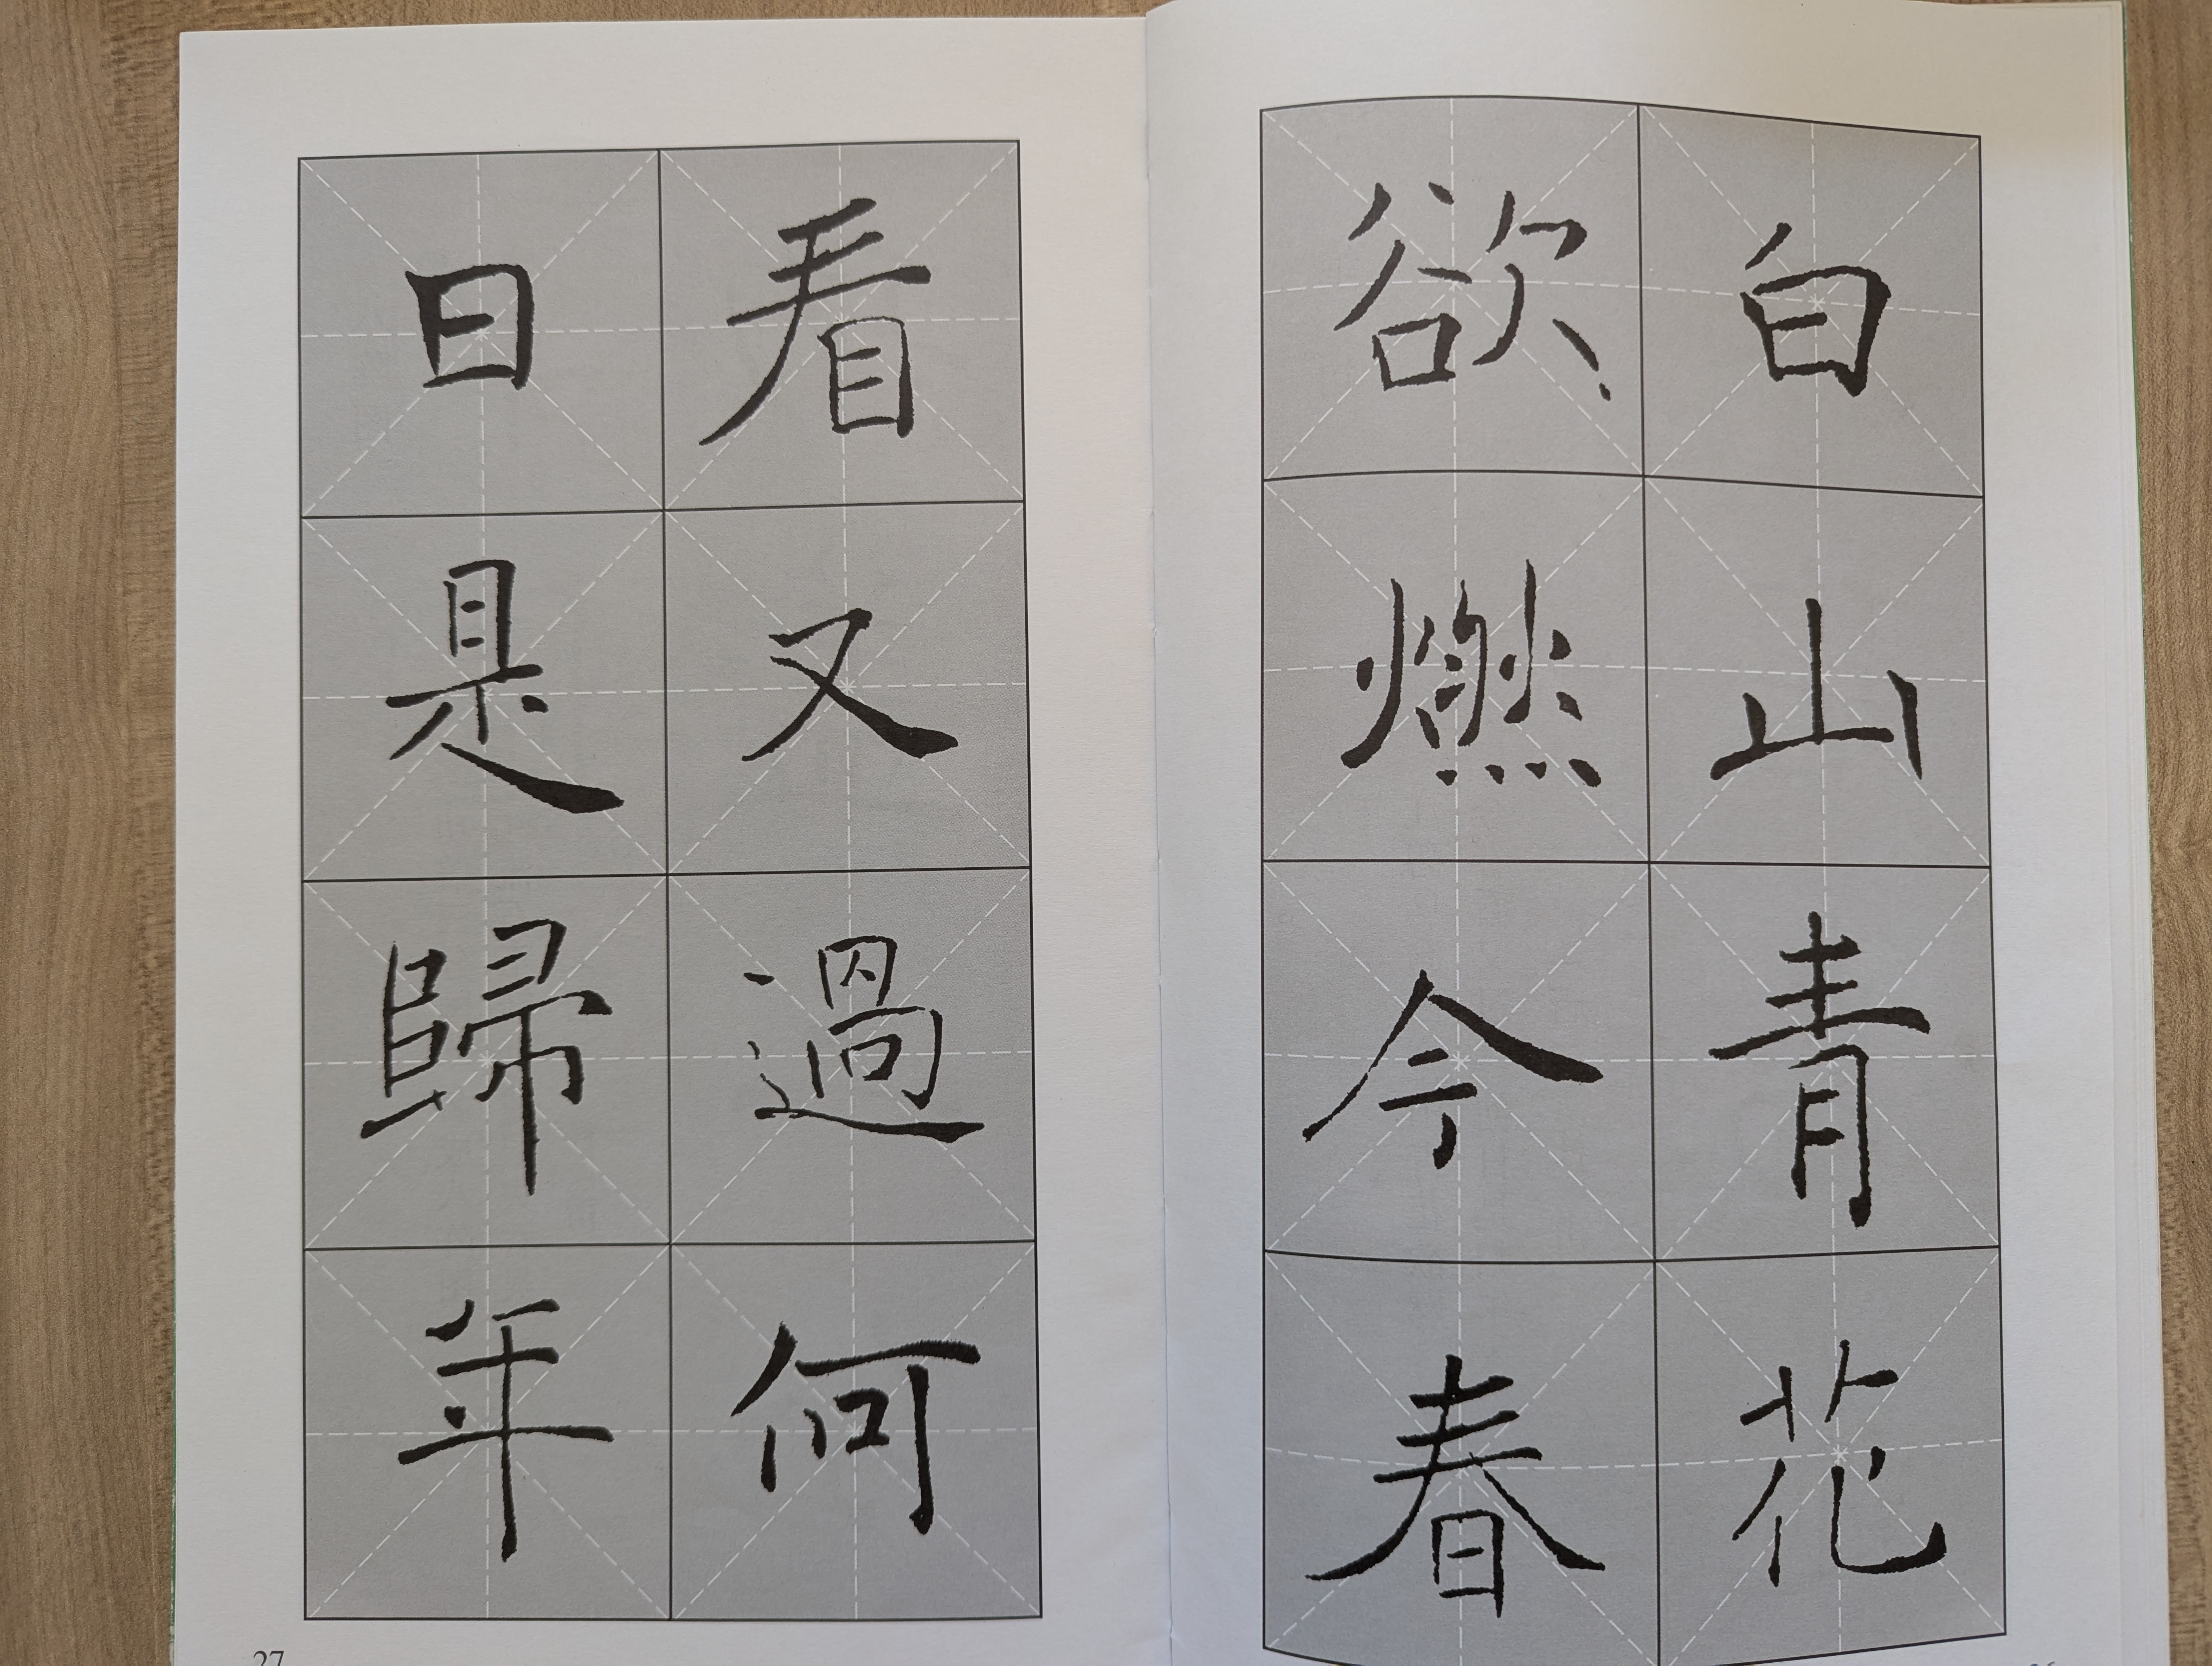 白山青花
欲燃今春
看又過何
日是歸年
27